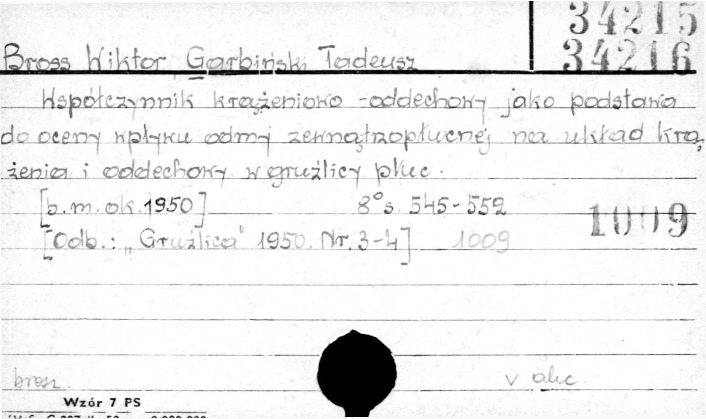 34215
Bross Wiktor, Garbiński Tadeusz 34216
Współczynnik krążeniowo-oddechowy jako podstawa
do oceny wpływu odmy zewnątrzopłucnej na układ krą,
żenia i oddechowy w gruźlicy płuc.
[b.m.ok.1950] 8°s. 545-552
1009
[Odb.: „Gruźlica" 1950. Nr. 3-4] 1009
brosz. v akc.
Wzór 7 PS